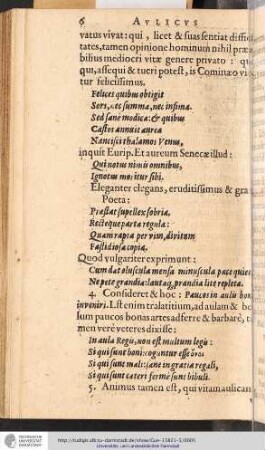 6 AVLICVS
vatus vivat: qui, licet & suas sentiat diffi
tates, tamen opinione hominum nihil præ
bilius mediocri vitæ genere privato: q
qui, assequi & tueri potest, is Cominæo vi
tur felicissimus.
Felices quibus obtigit
Sors, nec summa, nec infima.
Sed sane modica: & quibus
Castos annuit aurea
Nancisci thalamos Venus,
inquit Eurip. Et aureum Senecæ illud:
Qui notus nimis omnibus,
Ignotus moritur sibi.
Eleganter elegans, eruditissimus & gra
Poeta:
Præstat supellex sobria,
Recteque parta regula:
Quam rapta per vim, divitum
Fastidiosa copia.
Quod vulgariter exprimunt:
Cum dat oluscula mensa minuscula pace quie
Ne pete grandia: lautaq; prandia lite repleta.
4. Consideret & hoc: Paucos in aulis bon
inveniri. Est enim tralatitium, ad aulam & b
lum paucos bonas artes adferre & barbarè, t
men verè veteres dixisse:
In aula Regis, non est multum legis:
Si qui sunt boni: coguntur esse
Si qui sunt mali: sunt in gratia regali,
Si qui sunt cæteri fermè sunt bibuli.
5. Animus tamen est, qui vitam aulicam
http://tudigit.ulb.tu-darmstadt.de/show/Gue-11821-1/0009
Universitäts- und Landesbibliothek Darmstadt